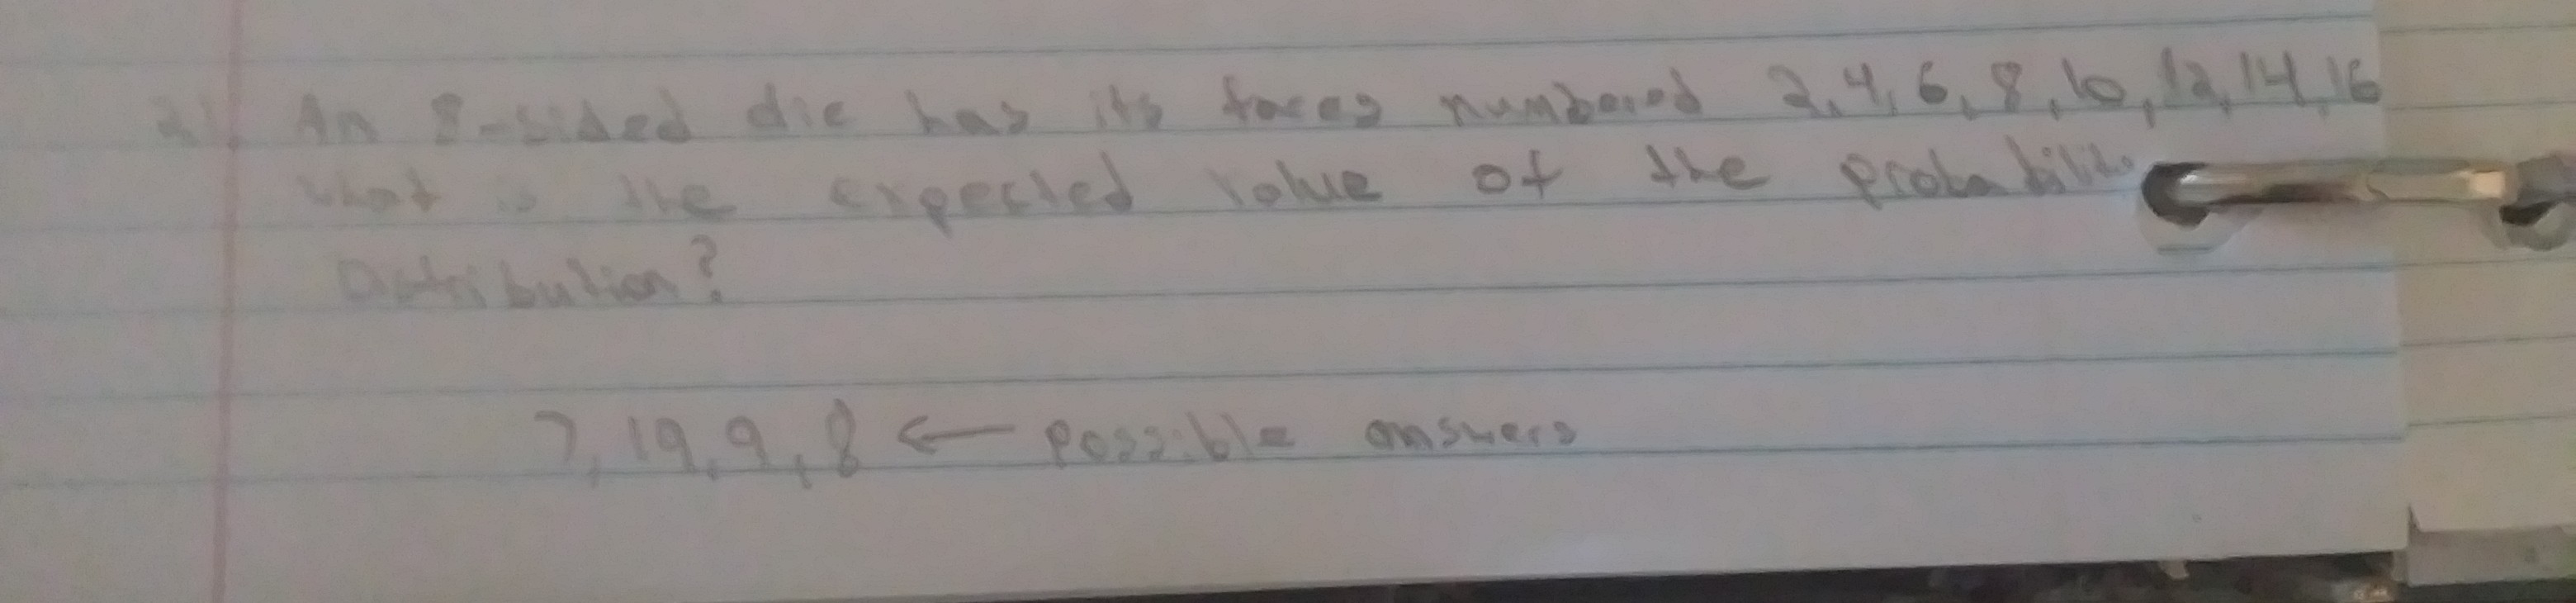 21. An 8-sided die has its faces numbered 2, 4, 6, 8, 10, 12, 14, 16
what is the expected value of the probability
Distribution?
7, 19, 9, 8 ← possible answers